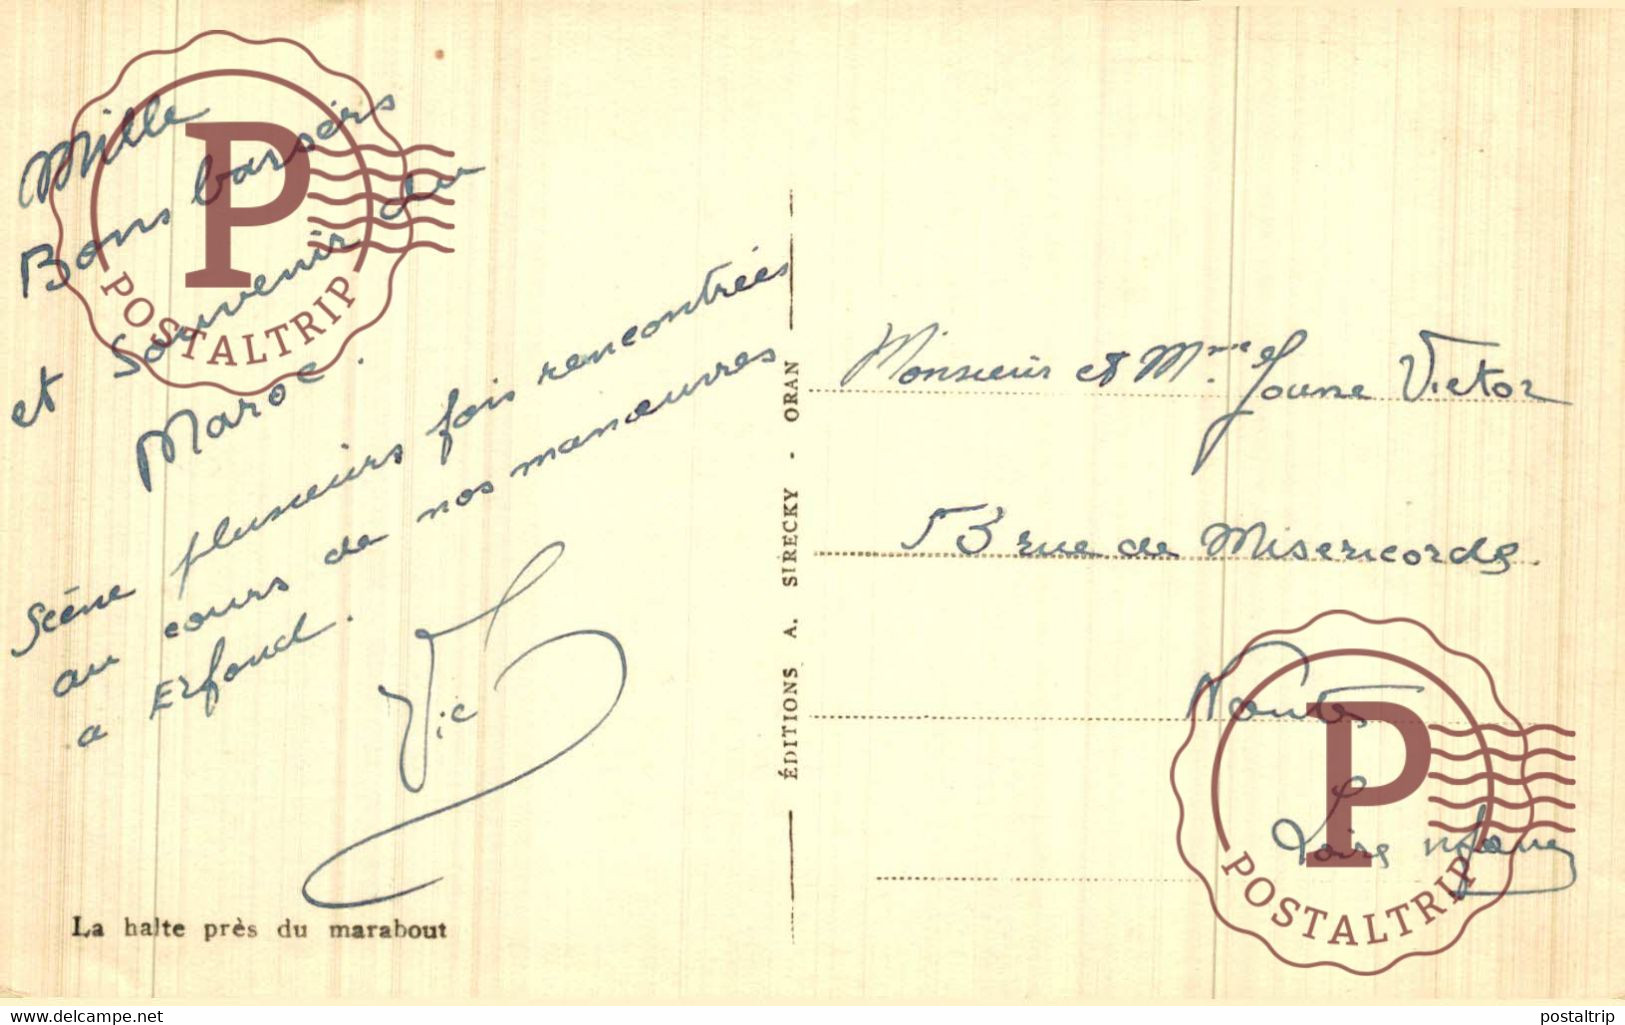 Mille
Bons barsérs
et Souvenir du
Maroc.
Scène plusieurs fois rencontrées
au cours de nos manœuvres
a Erfoud.
Vic
La halte près du marabout
ÉDITIONS A. SIRECKY - ORAN
Monsieur et Mme Joune Victor
53 rue de Misericorde.
Nantes
Loire
P
POSTALTRIP
P
POSTALTRIP
www.delcampe.net
postaltrip